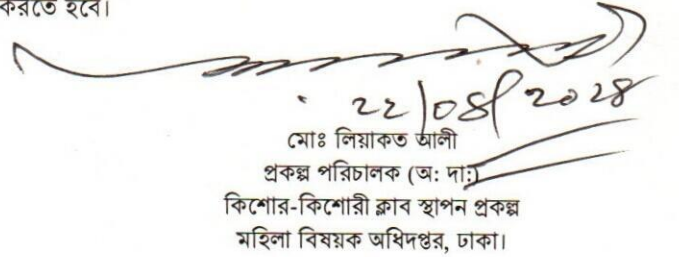 করতে হবে।
২২/০৪/২০২৪
মোঃ লিয়াকত আলী
প্রকল্প পরিচালক (অ: দা:)
কিশোর-কিশোরী ক্লাব স্থাপন প্রকল্প
মহিলা বিষয়ক অধিদপ্তর, ঢাকা।